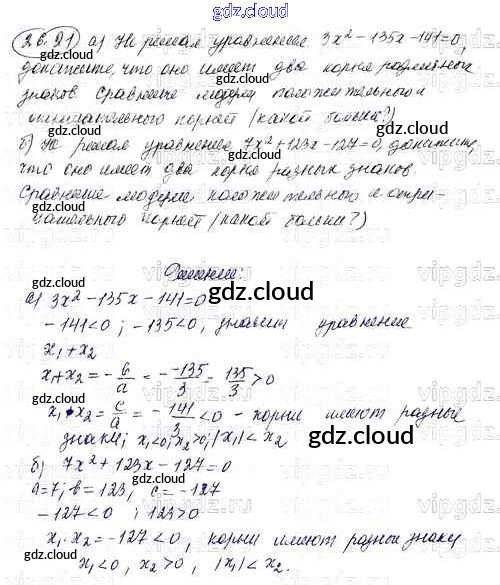 gdz.cloud
26.21 а) Не решая уравнения 3x² - 135x - 141 = 0,
докажите, что оно имеет два корня различных
знаков. Сравните модули положительного и
отрицательного корней (какой больше?)
б) Не решая уравнение 7x² + 123x - 127 = 0, докажите,
что оно имеет два корня разных знаков.
Сравните модули положительного и отри-
цательного корней (какой больше?)
Решение:
а) 3x² - 135x - 141 = 0
-141 < 0; -135 < 0, значит уравнение
x₁ + x₂
x₁ + x₂ = - б/a = - -135/3 = 135/3 > 0
x₁ · x₂ = c/a = - 141/3 < 0 - корни имеют разные
знаки; x₁ < 0; x₂ > 0; |x₁| < x₂
б) 7x² + 123x - 127 = 0
a = 7; b = 123, c = -127
-127 < 0; 123 > 0
x₁ · x₂ = -127 < 0, корни имеют разные знаки
x₁ < 0, x₂ > 0, |x₁| < x₂.